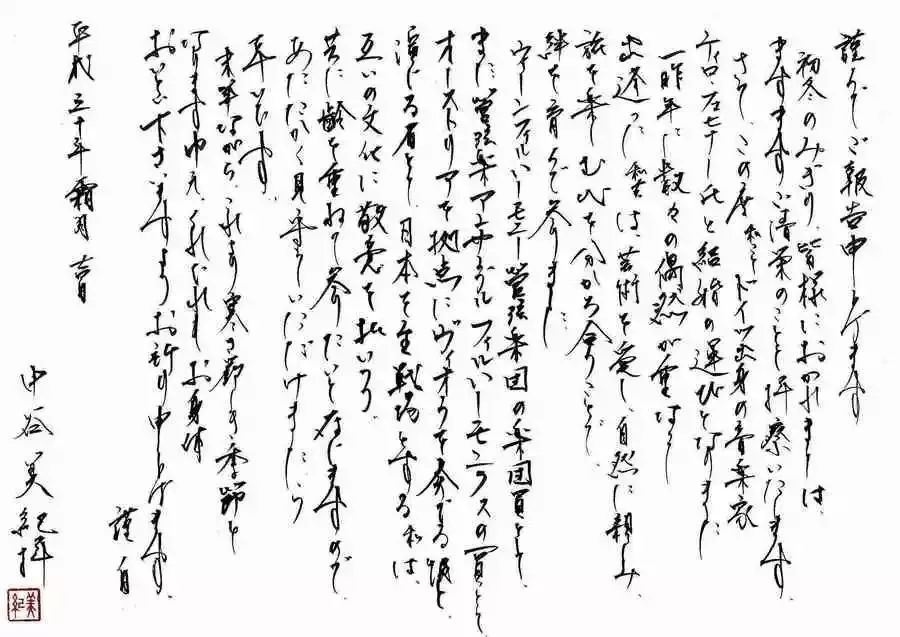 謹んでご報告申し上げます
初冬のみぎり、皆様におかれましては、
ますますご清栄のことと拝察いたします。
さて、この度 私こと ドイツ出身の音楽家
ティロ・フェヒナー氏と結婚の運びとなりました。
一昨年に数々の偶然が重なり
出逢った私たちは、芸術を愛し、自然に親しみ、
旅を楽しむ心を分かち合うことで、
絆を育んで参りました。
ウィーンフィルハーモニー管弦楽団の楽団員として、
また、管弦楽アンサンブル フィルハーモニクスの一員として
オーストリアを拠点にヴィオラを奏でる彼と、
演じる者として、日本を主戦場とする私は、
互いの文化に敬意を払いつつ、
共に齢を重ねて参りたいと存じますので、
あたたかく見守っていただけましたら
幸いです。
末筆ながら、これより寒さ厳しき季節と
なりますゆえ、くれぐれもお身体
おいといくださいますようお祈り申し上げます。
謹白
平成三十年 霜月 吉日
中谷美紀 拝
美紀